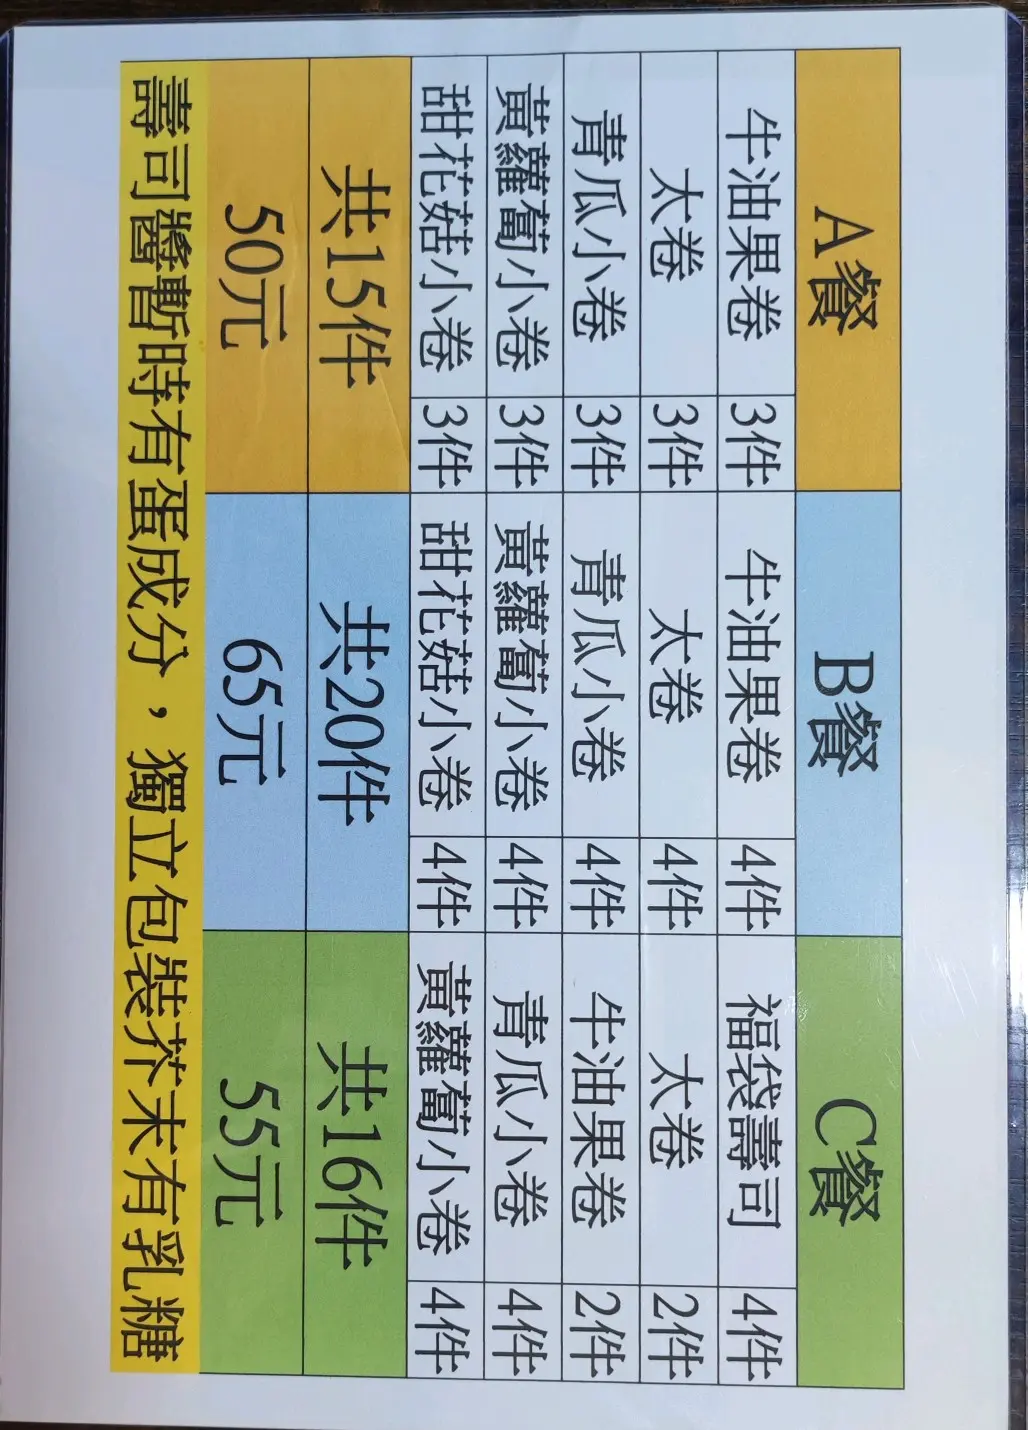 A餐 B餐 C餐
牛油果卷 3件 牛油果卷 4件 福袋壽司 4件
太卷 3件 太卷 4件 太卷 2件
青瓜小卷 3件 青瓜小卷 4件 牛油果卷 2件
黃蘿蔔小卷 3件 黃蘿蔔小卷 4件 青瓜小卷 4件
甜花菇小卷 3件 甜花菇小卷 4件 黃蘿蔔小卷 4件
共15件 共20件 共16件
50元 65元 55元
壽司醬暫時有蛋成分，獨立包裝芥末有乳糖